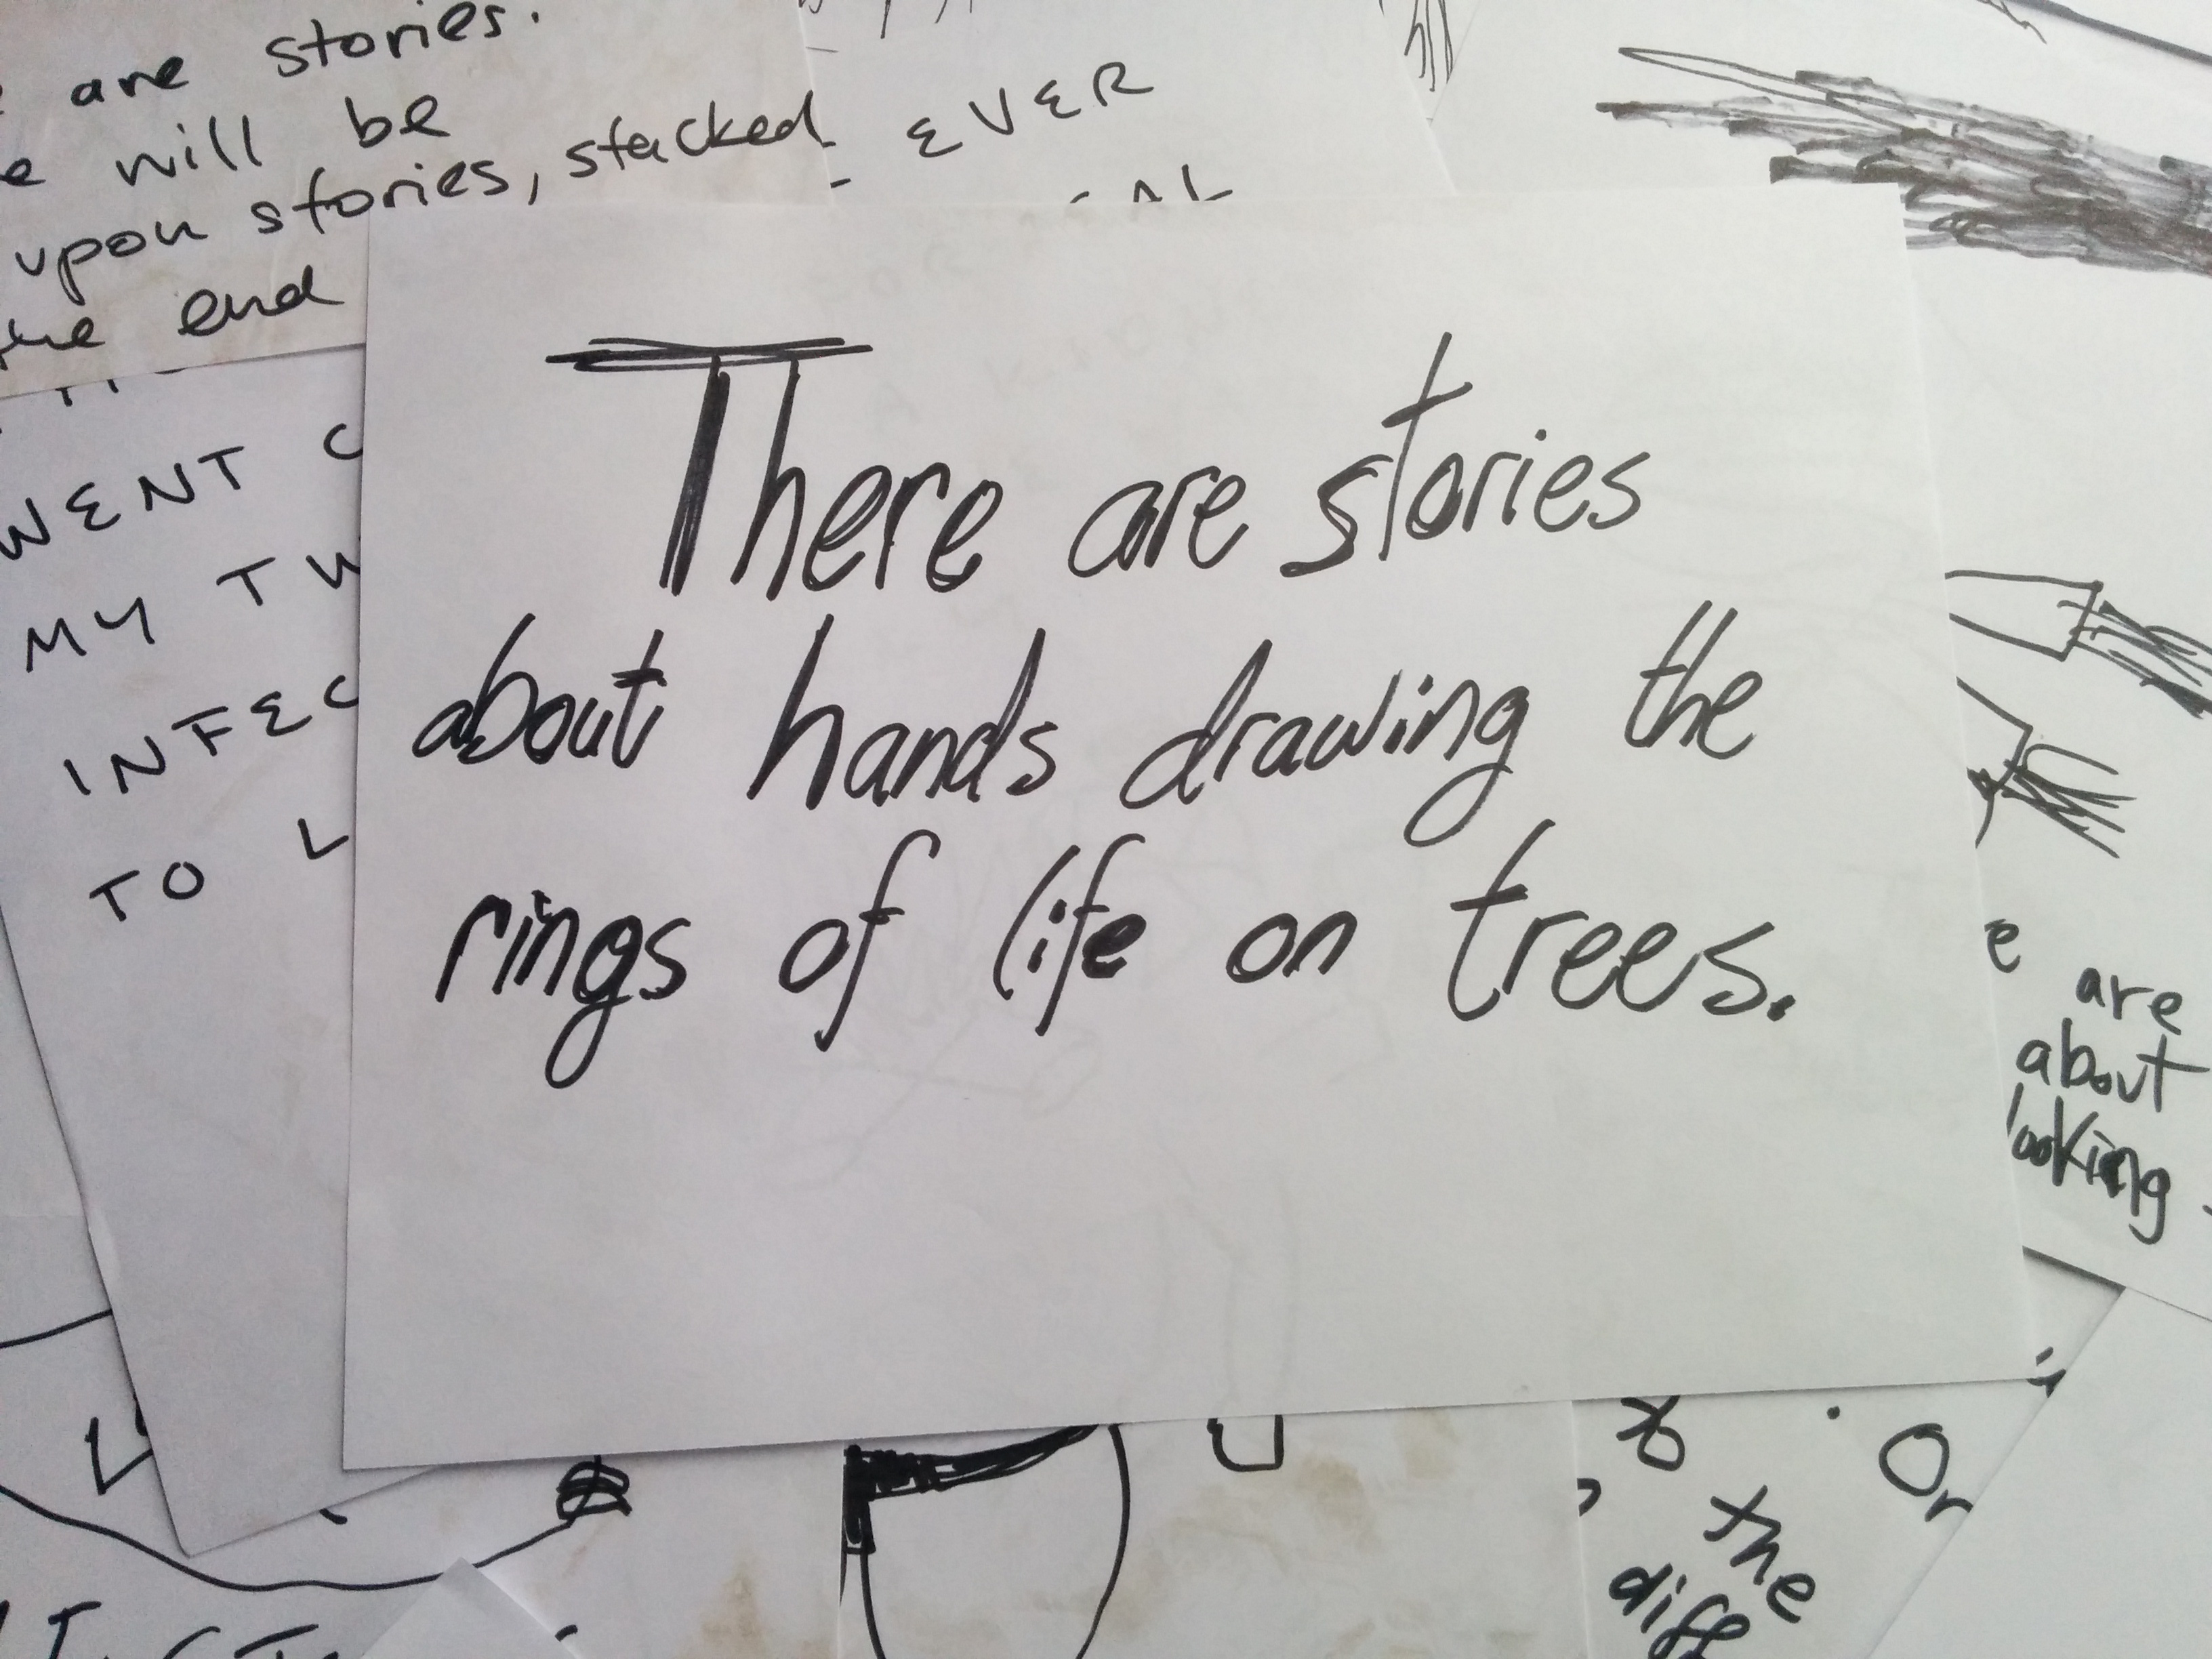 are stories.
will be
upon stories, stacked
the end
EVER
WENT
MY
TO
There are stories
about hands drawing the
rings of life on trees.
are
about
looking
to the
Or